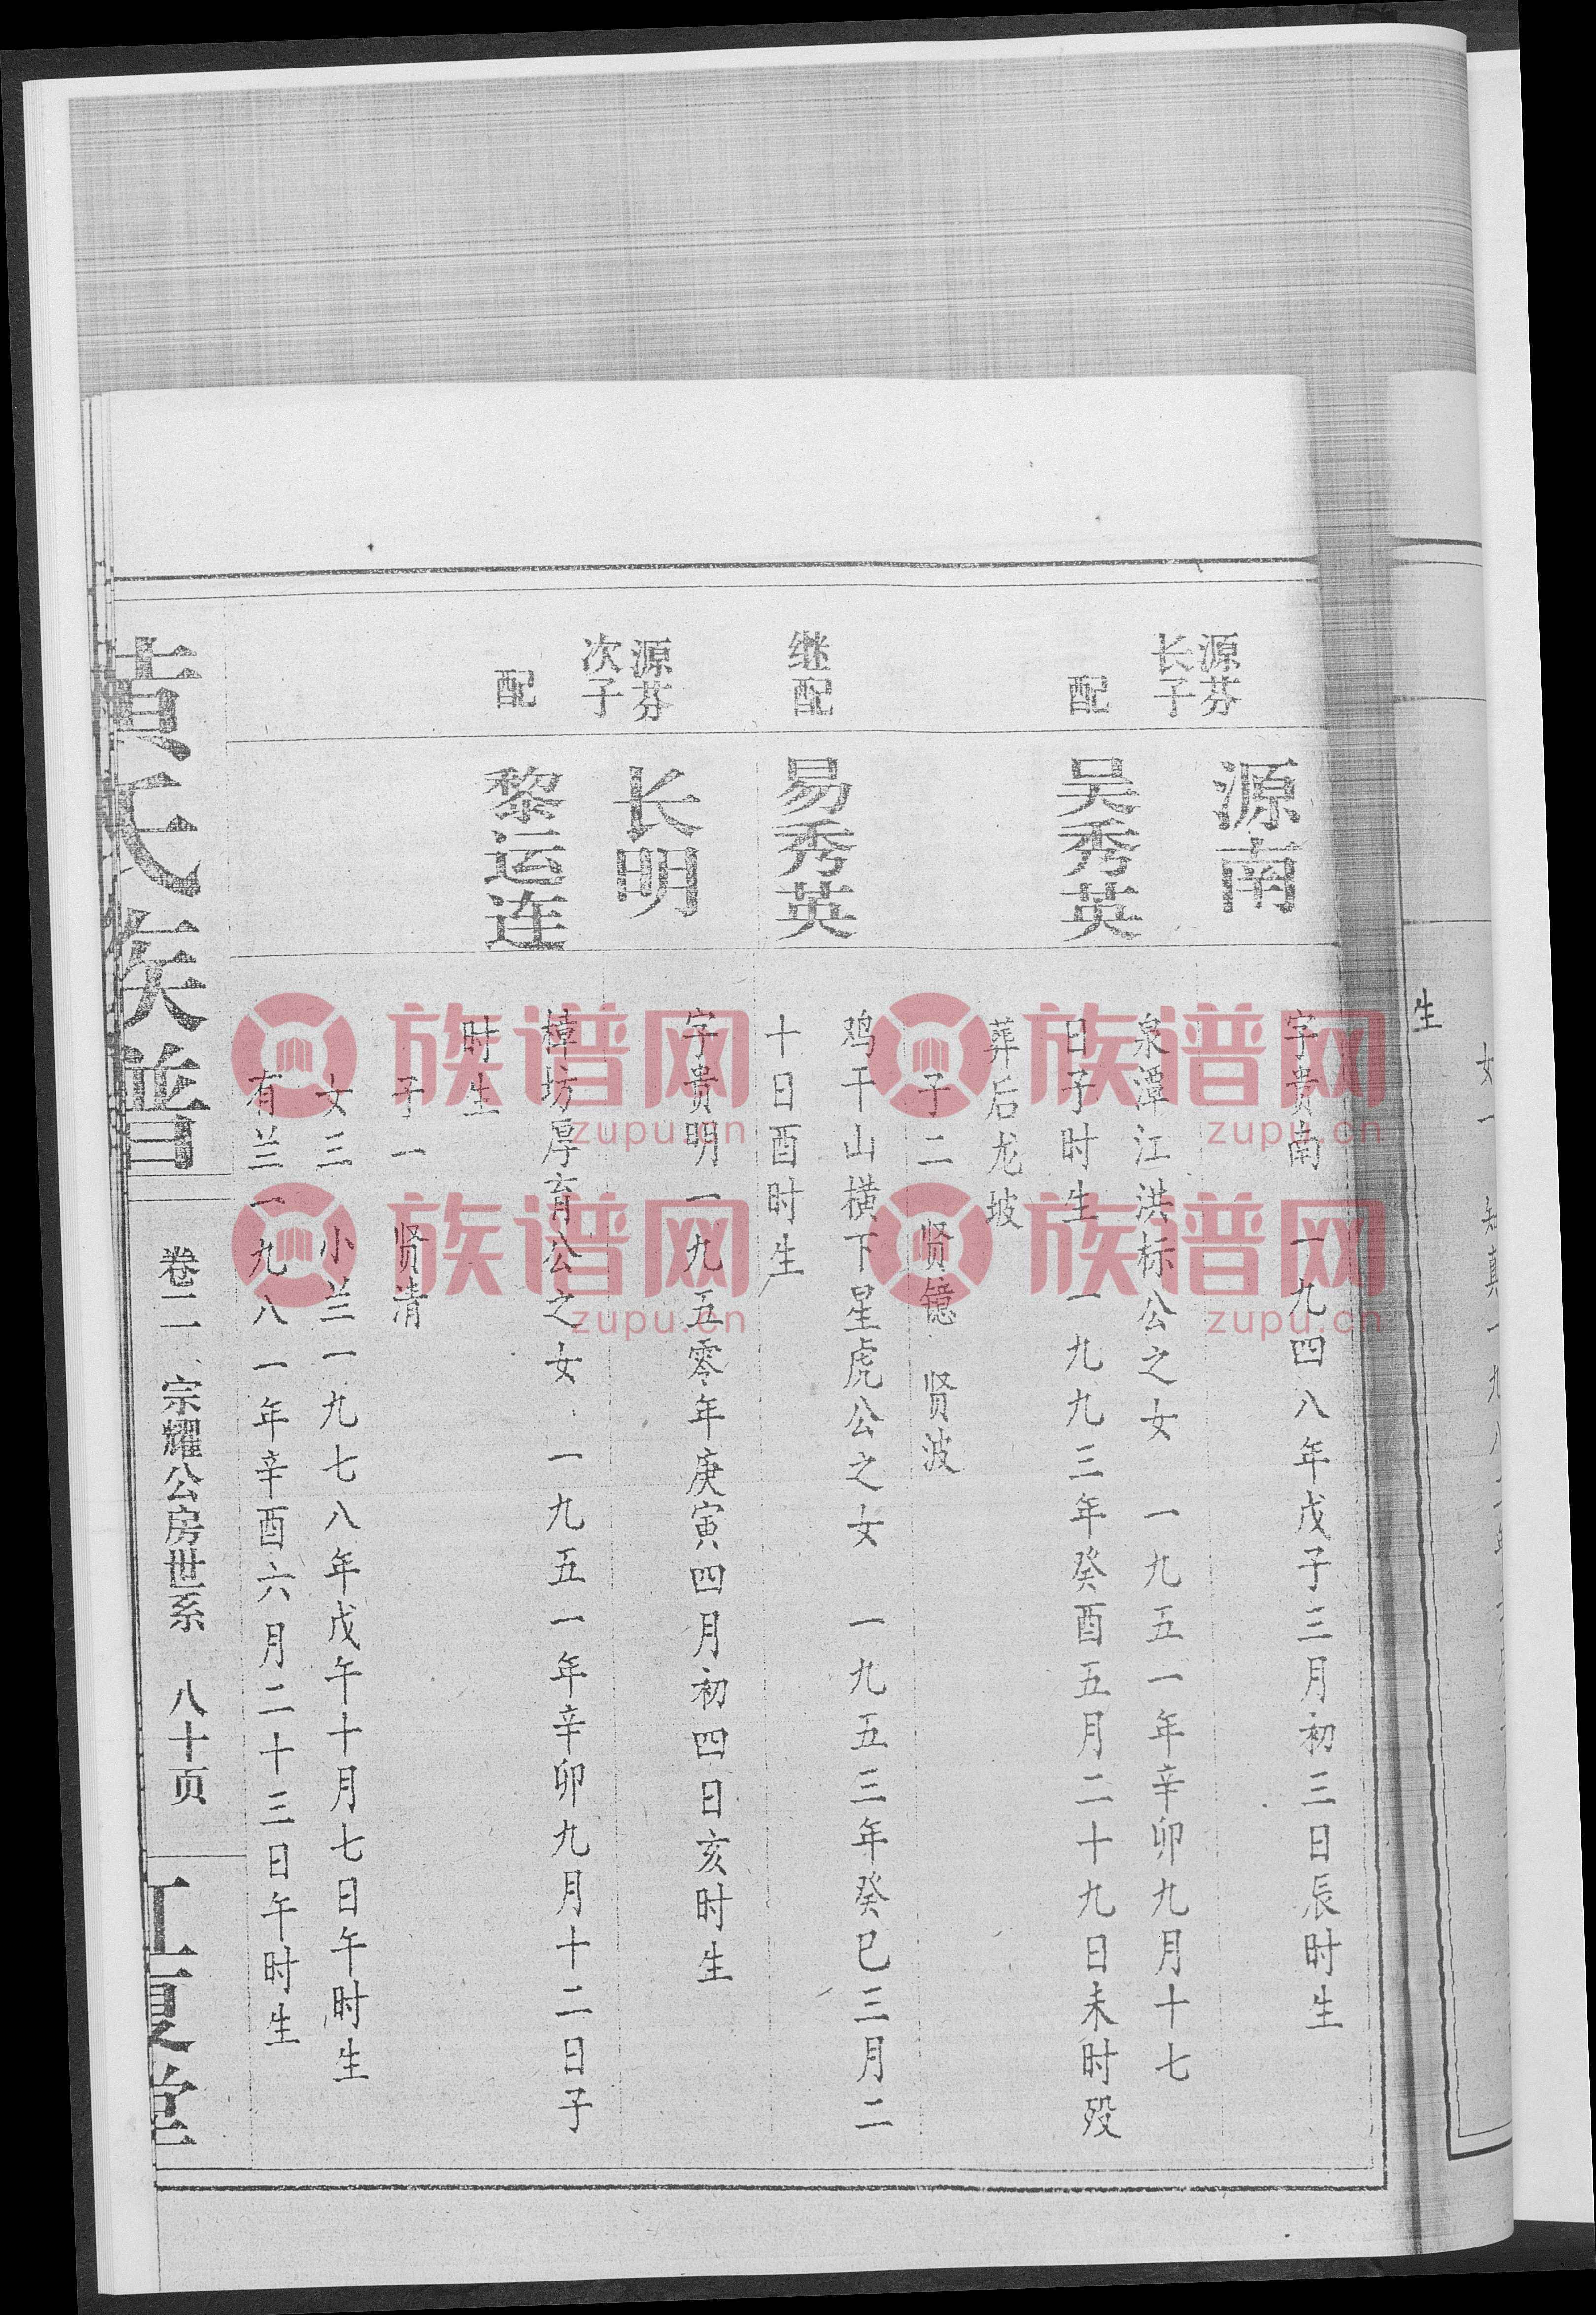 生
源芬
长子
源南
字贵南　一九四八年戊子三月初三日辰时生
配
吴秀英
泉潭江洪标公之女　一九五一年辛卯九月十七
日子时生　一九九三年癸酉五月二十九日未时殁
葬后龙坡
子二　贤镱　贤波
继配
易秀英
鸡干山横下星虎公之女　一九五三年癸巳三月二
十日酉时生
源芬
次子
长明
字贵明　一九五零年庚寅四月初四日亥时生
配
黎运连
樟坊厚育公之女　一九五一年辛卯九月十二日子
时生
子一　贤清
女三　小兰一九七八年戊午十月七日午时生
有兰一九八一年辛酉六月二十三日午时生
黄氏族谱
卷二　宗耀公房世系　八十页
江夏堂
族谱网
zupu.cn
族谱网
zupu.cn
族谱网
zupu.cn
族谱网
zupu.cn